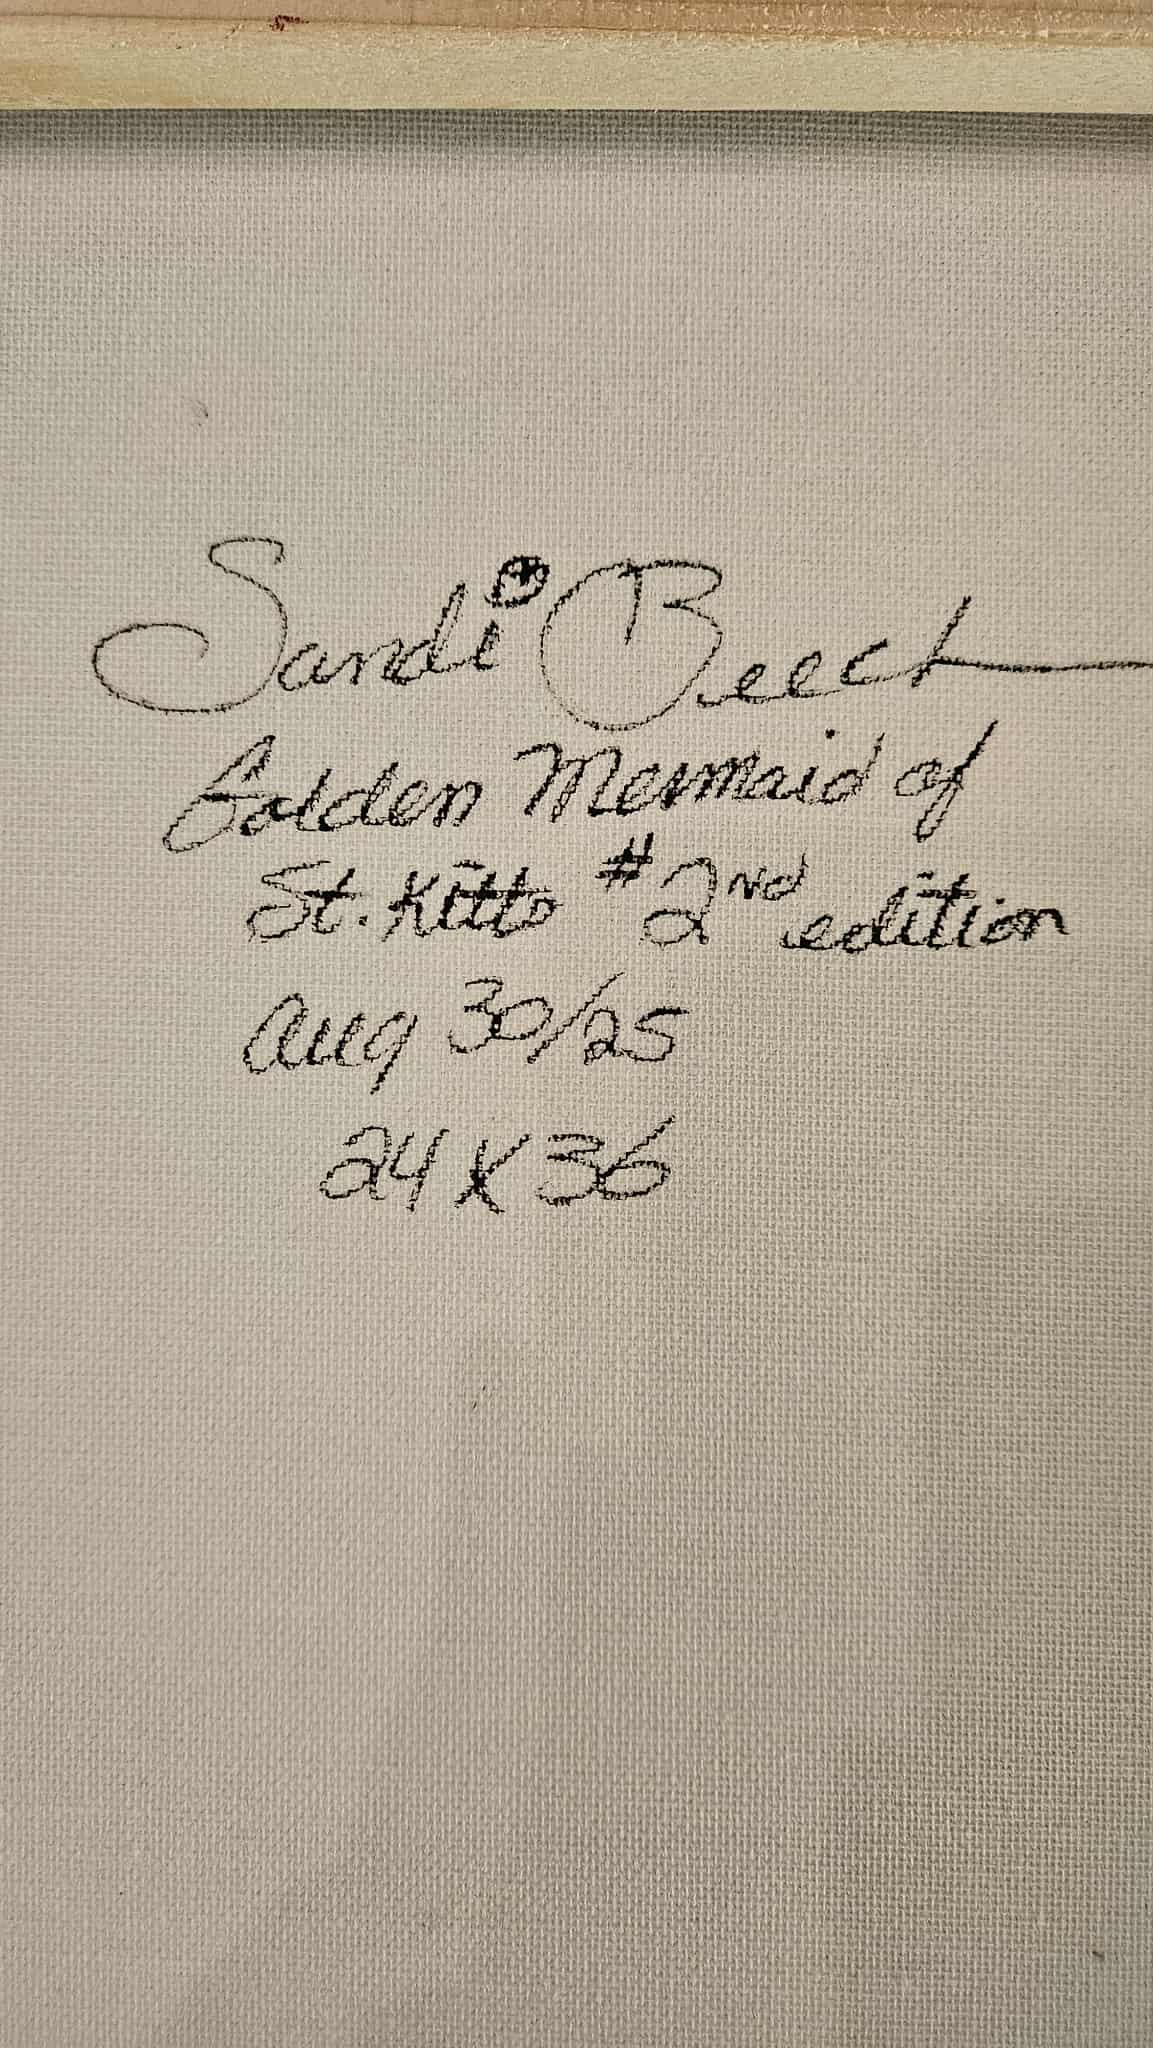 Sandi Beech
Golden Mermaid of
St. Kitts #2ND edition
Aug 30/25
24 x 36